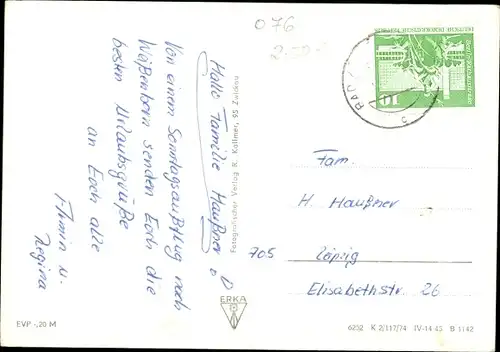 076
Hallo Familie Haußner
Von einem Sonntagsausflug nach
Weißenborn senden Euch die
besten Urlaubsgrüße
an Euch alle
Armin u.
Regina
Fotografischer Verlag R. Kallmer, 95 Zwickau
ERKA
EVP -,20 M
DEUTSCHE DEMOKRATISCHE REPUBLIK
10
BAD
c
Fam.
H. Haußner
705 Leipzig
Elisabethstr. 26
6232 K 2/117/74 IV-14-45 B 1142